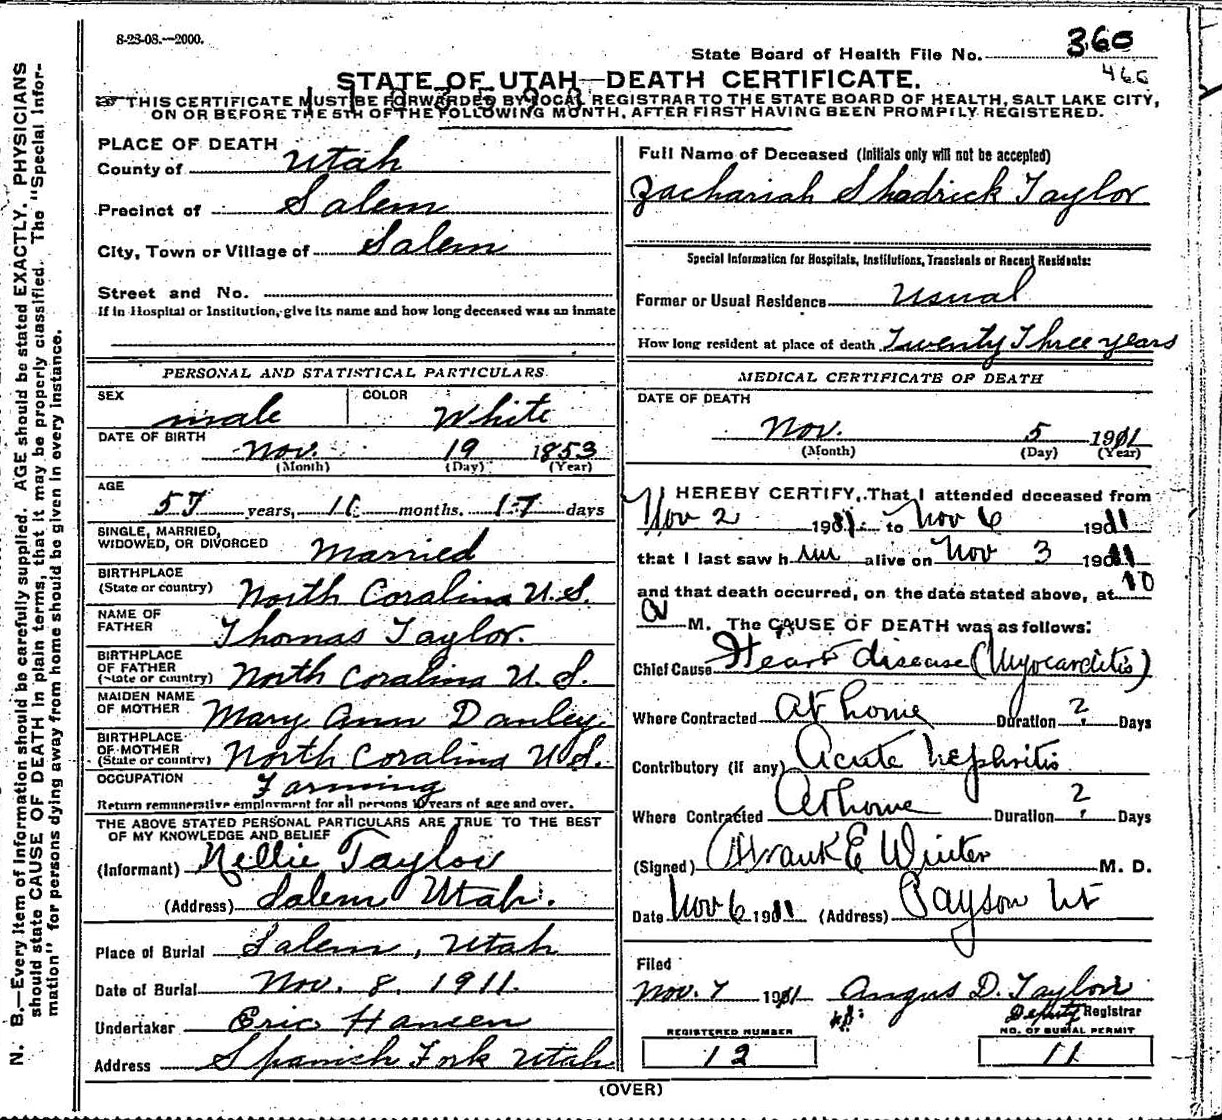 8-23-08.—2000.
State Board of Health File No. 360
466
STATE OF UTAH—DEATH CERTIFICATE.
THIS CERTIFICATE MUST BE FORWARDED BY LOCAL REGISTRAR TO THE STATE BOARD OF HEALTH, SALT LAKE CITY,
ON OR BEFORE THE 5TH OF THE FOLLOWING MONTH, AFTER FIRST HAVING BEEN PROMPILY REGISTERED.
N. B.—Every item of information should be carefully supplied. AGE should be stated EXACTLY. PHYSICIANS
should state CAUSE OF DEATH in plain terms, that it may be properly classified. The "Special Infor-
mation" for persons dying away from home should be given in every instance.
PLACE OF DEATH
County of Utah
Precinct of Salem
City, Town or Village of Salem
Street and No.
If in Hospital or Institution, give its name and how long deceased was an inmate
PERSONAL AND STATISTICAL PARTICULARS
SEX male COLOR White
DATE OF BIRTH Nov. 19 1853
(Month) (Day) (Year)
AGE
57 years, 11 months. 17 days
SINGLE, MARRIED,
WIDOWED, OR DIVORCED Married
BIRTHPLACE
(State or country) North Coralina U.S.
NAME OF
FATHER Thomas Taylor.
BIRTHPLACE
OF FATHER
(State or country) North Coralina U.S.
MAIDEN NAME
OF MOTHER Mary Ann Danley
BIRTHPLACE
OF MOTHER
(State or country) North Coralina U.S.
OCCUPATION Farming
Return remunerative employment for all persons 10 years of age and over.
THE ABOVE STATED PERSONAL PARTICULARS ARE TRUE TO THE BEST
OF MY KNOWLEDGE AND BELIEF
(Informant) Nellie Taylor
(Address) Salem Utah.
Place of Burial Salem, Utah
Date of Burial Nov. 8, 1911.
Undertaker Eric Hansen
Address Spanish Fork Utah
Full Name of Deceased (Initials only will not be accepted)
Zachariah Shadrick Taylor
Special Information for Hospitals, Institutions, Transients or Recent Residents:
Former or Usual Residence Usual
How long resident at place of death Twenty Three years
MEDICAL CERTIFICATE OF DEATH
DATE OF DEATH
Nov. 5 1911
(Month) (Day) (Year)
I HEREBY CERTIFY, That I attended deceased from
Nov 2 1911 to Nov 6 1911
that I last saw him alive on Nov 3 1911
and that death occurred, on the date stated above, at 10
a M. The CAUSE OF DEATH was as follows:
Chief Cause Heart disease (Myocarditis)
Where Contracted At home Duration ? Days
Contributory (if any) Acute Nephritis
Where Contracted At home Duration ? Days
(Signed) Frank E Winter M. D.
Date Nov 6 1911 (Address) Payson Ut
Filed
Nov. 7 1911 Angus D. Taylor
Deputy Registrar
REGISTERED NUMBER NO. OF BURIAL PERMIT
12 11
(OVER)